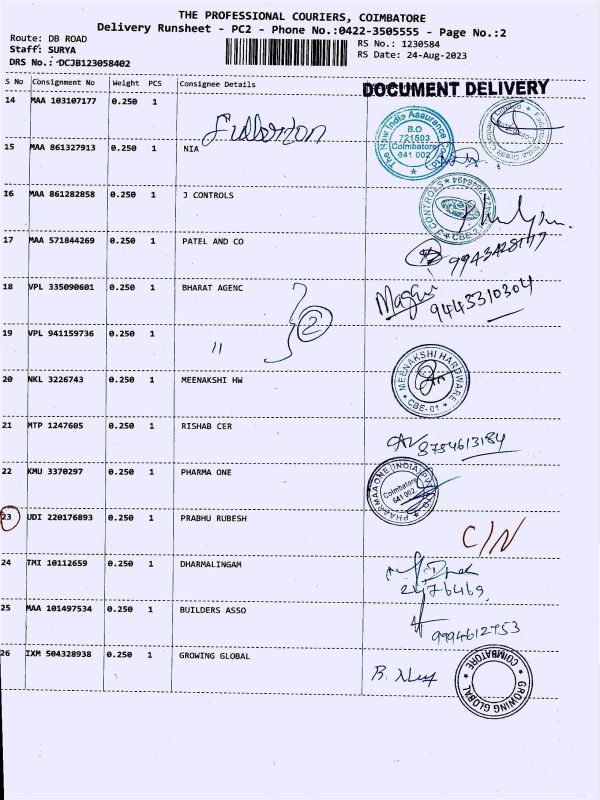 THE PROFESSIONAL COURIERS, COIMBATORE
Delivery Runsheet - PC2 - Phone No.:0422-3505555 - Page No.:2
Route: DB ROAD
Staff: SURYA
DRS No.: DCJB123058402
RS No.: 1230584
RS Date: 24-Aug-2023
S No Consignment No Weight PCS Consignee Details
DOCUMENT DELIVERY
14 MAA 103107177 0.250 1
Fullerton
15 MAA 861327913 0.250 1 NIA
The New India Assurance
B.O
721503
Coimbatore
641 002
16 MAA 861282858 0.250 1 J CONTROLS
J CONTROLS
CBE-2
17 MAA 571844269 0.250 1 PATEL AND CO
9943428177
18 VPL 335090601 0.250 1 BHARAT AGENC
2
9443310304
19 VPL 941159736 0.250 1 "
20 NKL 3226743 0.250 1 MEENAKSHI HW
MEENAKSHI HARDWARE
CBE-01
21 MTP 1247605 0.250 1 RISHAB CER
8754613184
22 KMU 3370297 0.250 1 PHARMA ONE
Coimbatore
641 002
23 UDI 220176893 0.250 1 PRABHU RUBESH
C/N
24 TMI 10112659 0.250 1 DHARMALINGAM
2476469
25 MAA 101497534 0.250 1 BUILDERS ASSO
9994612753
26 IXM 504328938 0.250 1 GROWING GLOBAL
GROWING GLOBAL
COIMBATORE